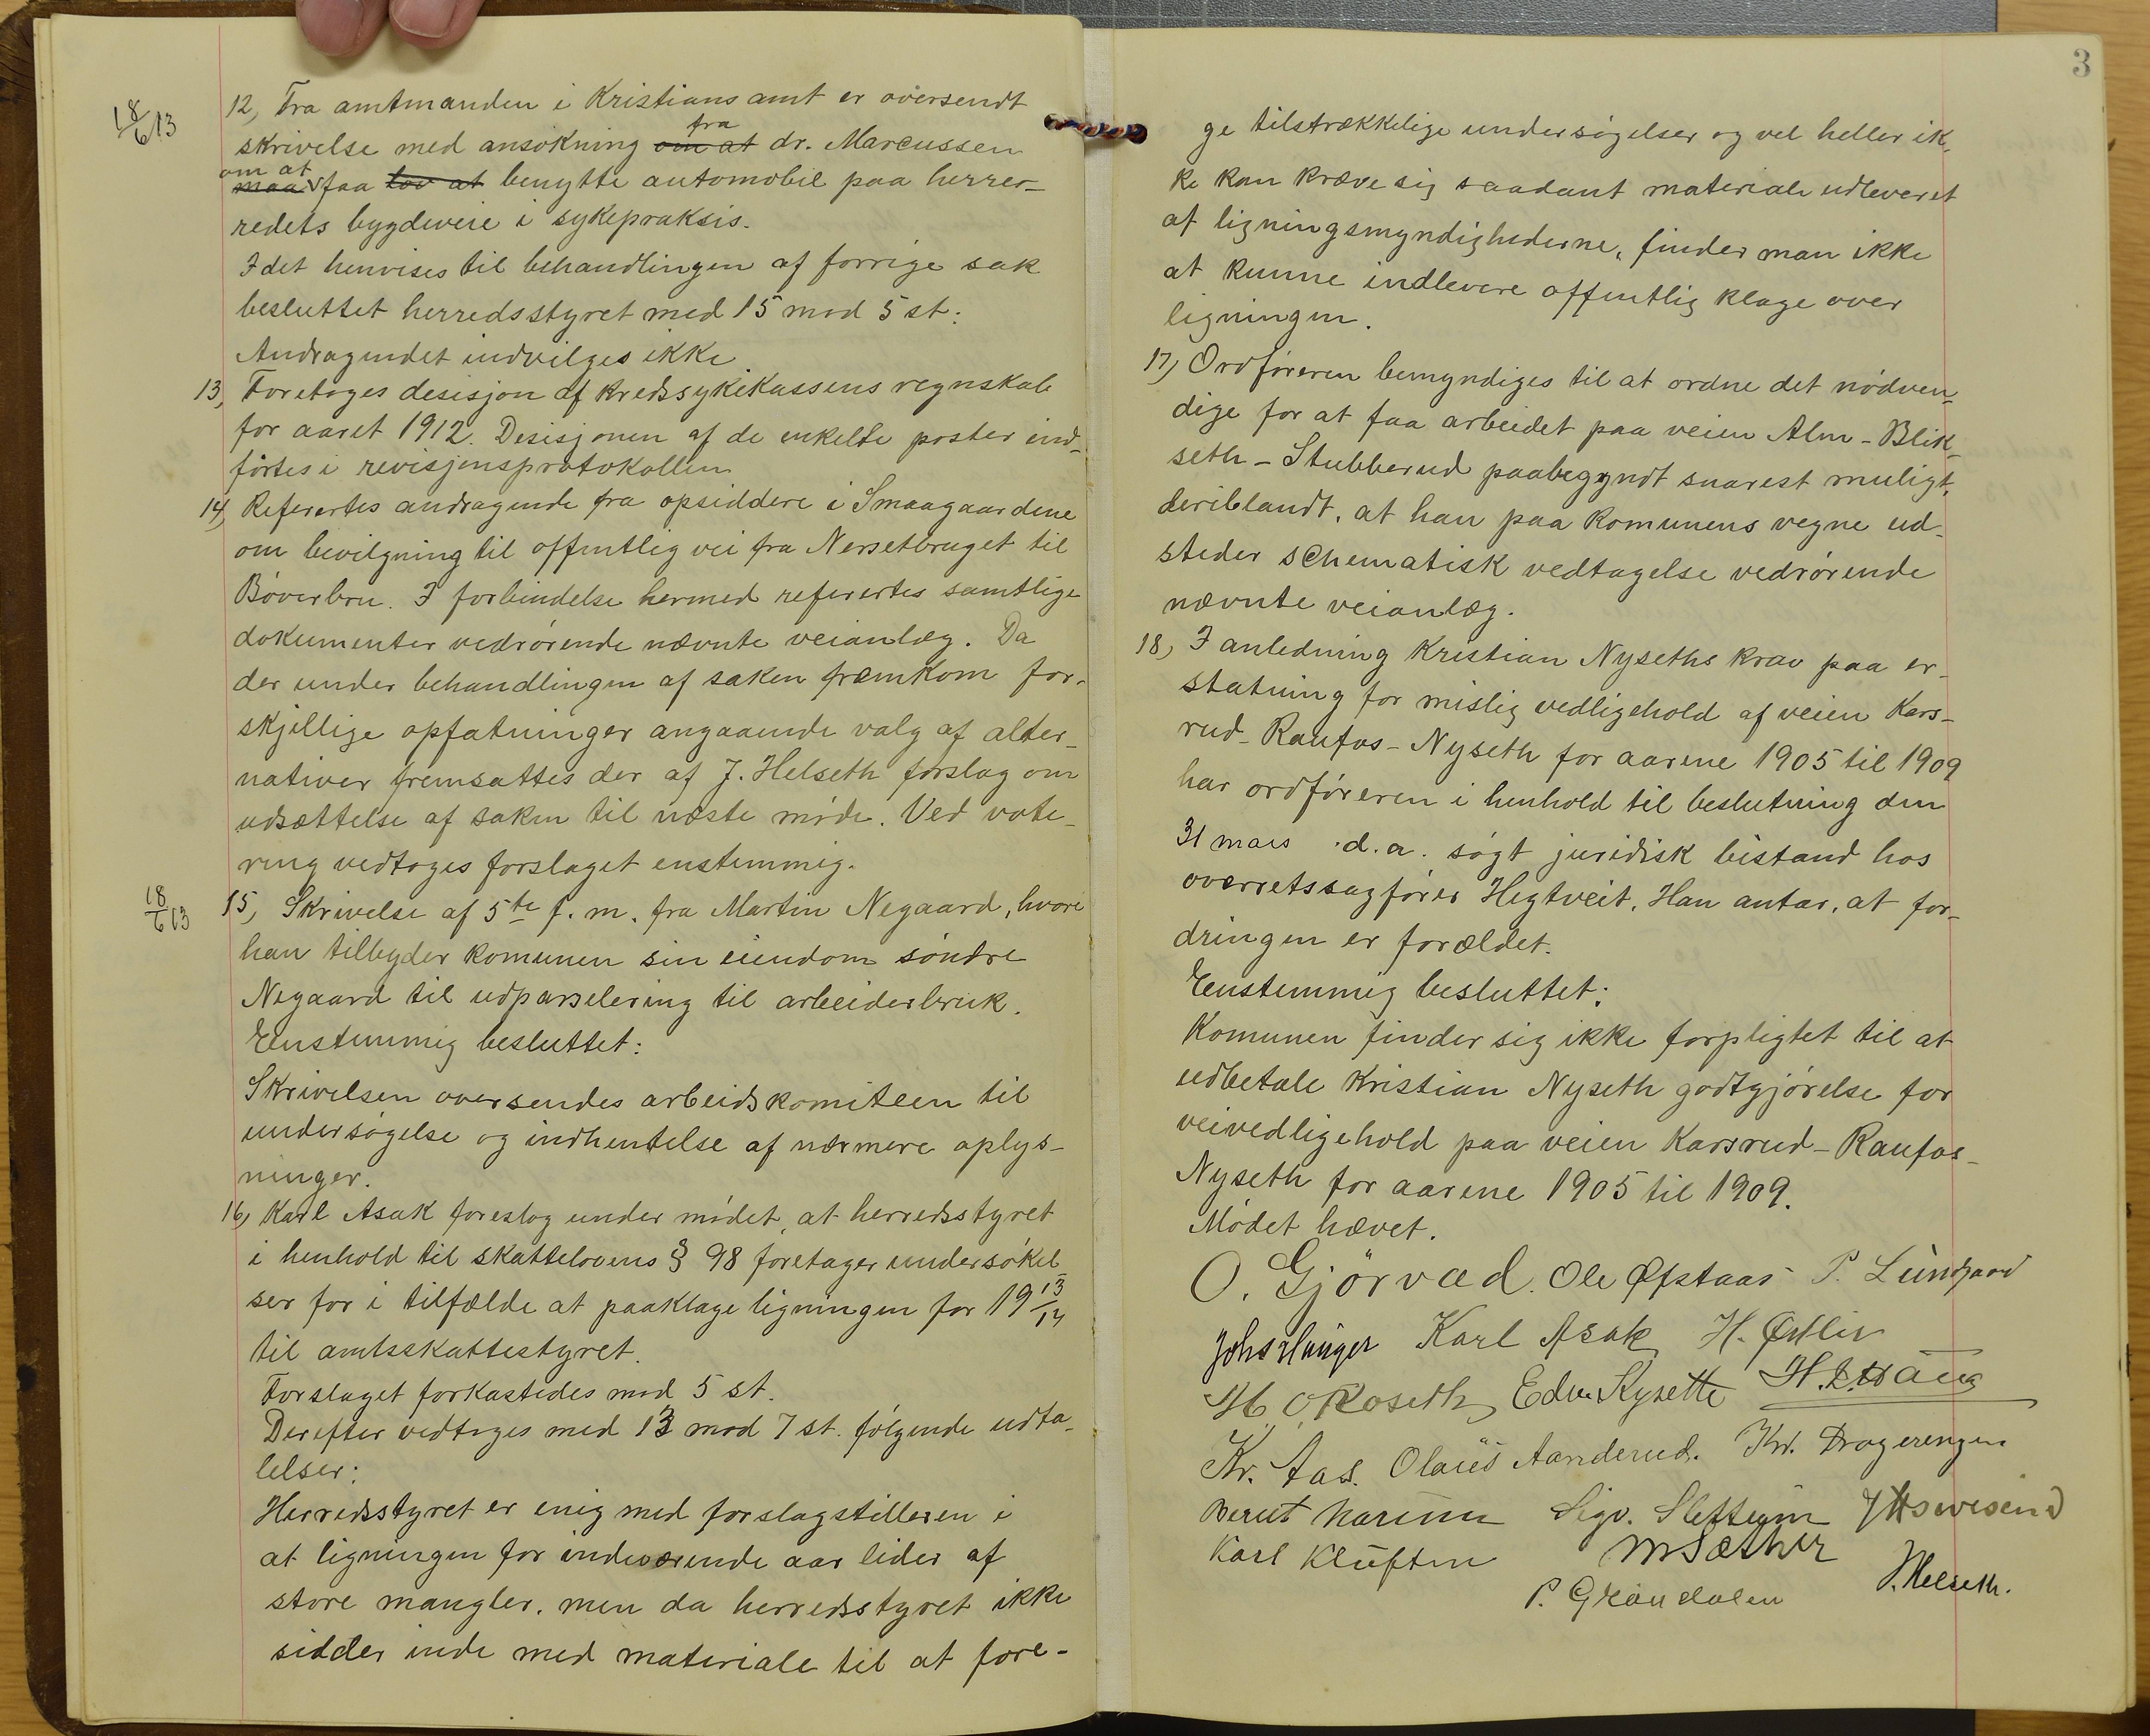 18/6 13
12, Fra amtmanden i Kristians amt er oversendt
skrivelse med ansøkning om at fra dr. Marcussen
maa om at faa lov at benytte automobil paa herrer-
redets bygdeveie i sykepraksis.
Idet henvises til behandlingen af forrige sak
besluttet herredsstyret med 15 mod 5 st:
Andragendet indvilges ikke
13, Foretoges desisjon af kredssykekassens regnskab
for aaret 1912. Desisjonen af de enkelte poster ind-
førtes i revisjonsprotokollen
14, Refertes andragende fra opsiddere i Smaagaardene
om bevilgning til offentlig vei fra Nersetbruget til
Bøverbru. I forbindelse hermed refertes samtlige
dokumenter vedrørende nævnte veianlæg. Da
der under behandlingen af saken fremkom for-
skjellige opfatninger angaaende valg af alter-
nativer fremsattes der af J. Helseth forslag om
udsættelse af saken til næste møde. Ved vote-
ring vedtoges forslaget enstemmig.
18/6 13
15, Skrivelse af 5te f. m. fra Martin Negaard, hvori
han tilbyder komunen sin eiendom søndre
Negaard til udparselering til arbeiderbruk.
Enstemmig besluttet:
Skrivelsen oversendes arbeidskomiteen til
undersøgelse og indhentelse af nærmere oplys-
ninger.
16, Karl Asak foreslog under mødet, at herredsstyret
i henhold til skattelovens § 98 foretager undersøkel-
ser for i tilfælde at paaklage ligningen for 19 13/14
til amtsskattestyret.
Forslaget forkastedes mod 5 st.
Derefter vedtoges med 13 mod 7 st. følgende udta-
lelser:
Herredsstyret er enig med forslagstilleren i
at ligningen for indeværende aar lider af
store mangler, men da herredsstyret ikke
sidder inde med materiale til at fore-
3
ge tilstrækkelige undersøgelser og vel heller ik-
ke kan kræve sig saadant materiale udleveret
af ligningsmyndighederne, finder man ikke
at kunne indlevere offentlig klage over
ligningen.
17, Ordføreren bemyndiges til at ordne det nødven-
dige for at faa arbeidet paa veien Alm - Blik-
seth - Stubberud paabegyndt snarest muligt,
deriblandt, at han paa komunens vegne ud-
steder schematisk vedtagelse vedrørende
nævnte veianlæg.
18, I anledning Kristian Nyseths krav paa er-
statning for mislig vedligehold af veien Kars-
rud - Raufos - Nyseth for aarene 1905 til 1909
har ordføreren i henhold til beslutning den
31 mars d. a. søgt juridisk bistand hos
overretssagfører Hegtveit. Han antar, at for-
dringen er forældet.
Enstemmig besluttet:
Komunen finder sig ikke forpligtet til at
udbetale Kristian Nyseth godtgjørelse for
veivedligehold paa veien Karsrud - Raufos -
Nyseth for aarene 1905 til 1909.
Mødet hævet.
O. Gjørvad. Ole Øfstaas P. Lundgaard
Johs Hunger Karl Asak H. Østlie
H. O. Roseth Edv. Kyseth
Kr. Aas. Olaus Aanderud. Kr. Dragerengen
Bernt Narum Sigv. Slettum
Karl Kluften M Sæther
P. Grøndalen J. Helseth.